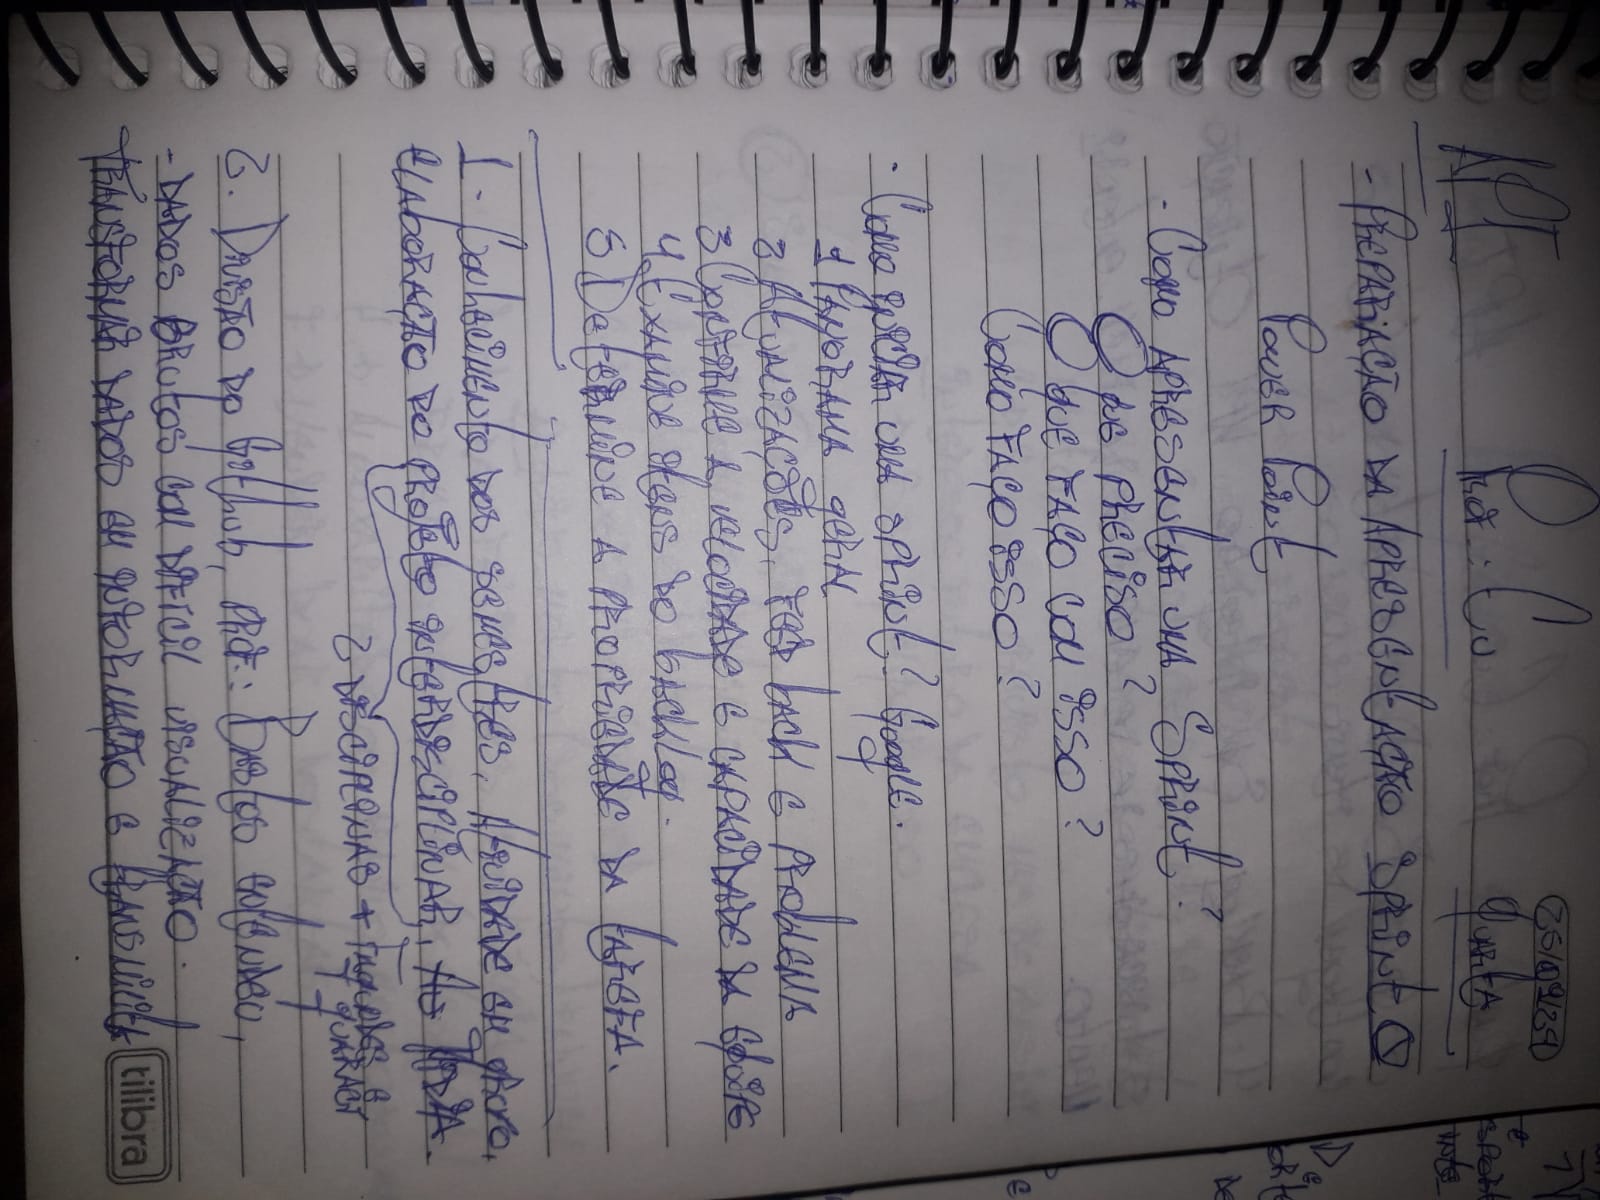 API Prof.: Cu 25/09/24
Quarta
- Preparação da Apresentação Sprint 0
Power Point
- Como apresentar uma Sprint?
O que preciso?
O que faço com isso?
Como faço isso?
- Como iniciar uma sprint? Google.
1 Panorama geral
2 Atualizações, feed back e problema
3 Confirme a velocidade e capacidade da equipe
4. Examine itens do backlog.
5 Determine a propriedade da tarefa.
1 - Conhecimento dos semestres, Atividade em grupo,
elaboração do projeto interdisciplinar,
2 disciplinas + Fagundes e
2. Divisão do Github, prof.: Bastos entendeu,
- Dados brutos com difícil visualização.
Transformar dados em informação e transmitir
tilibra